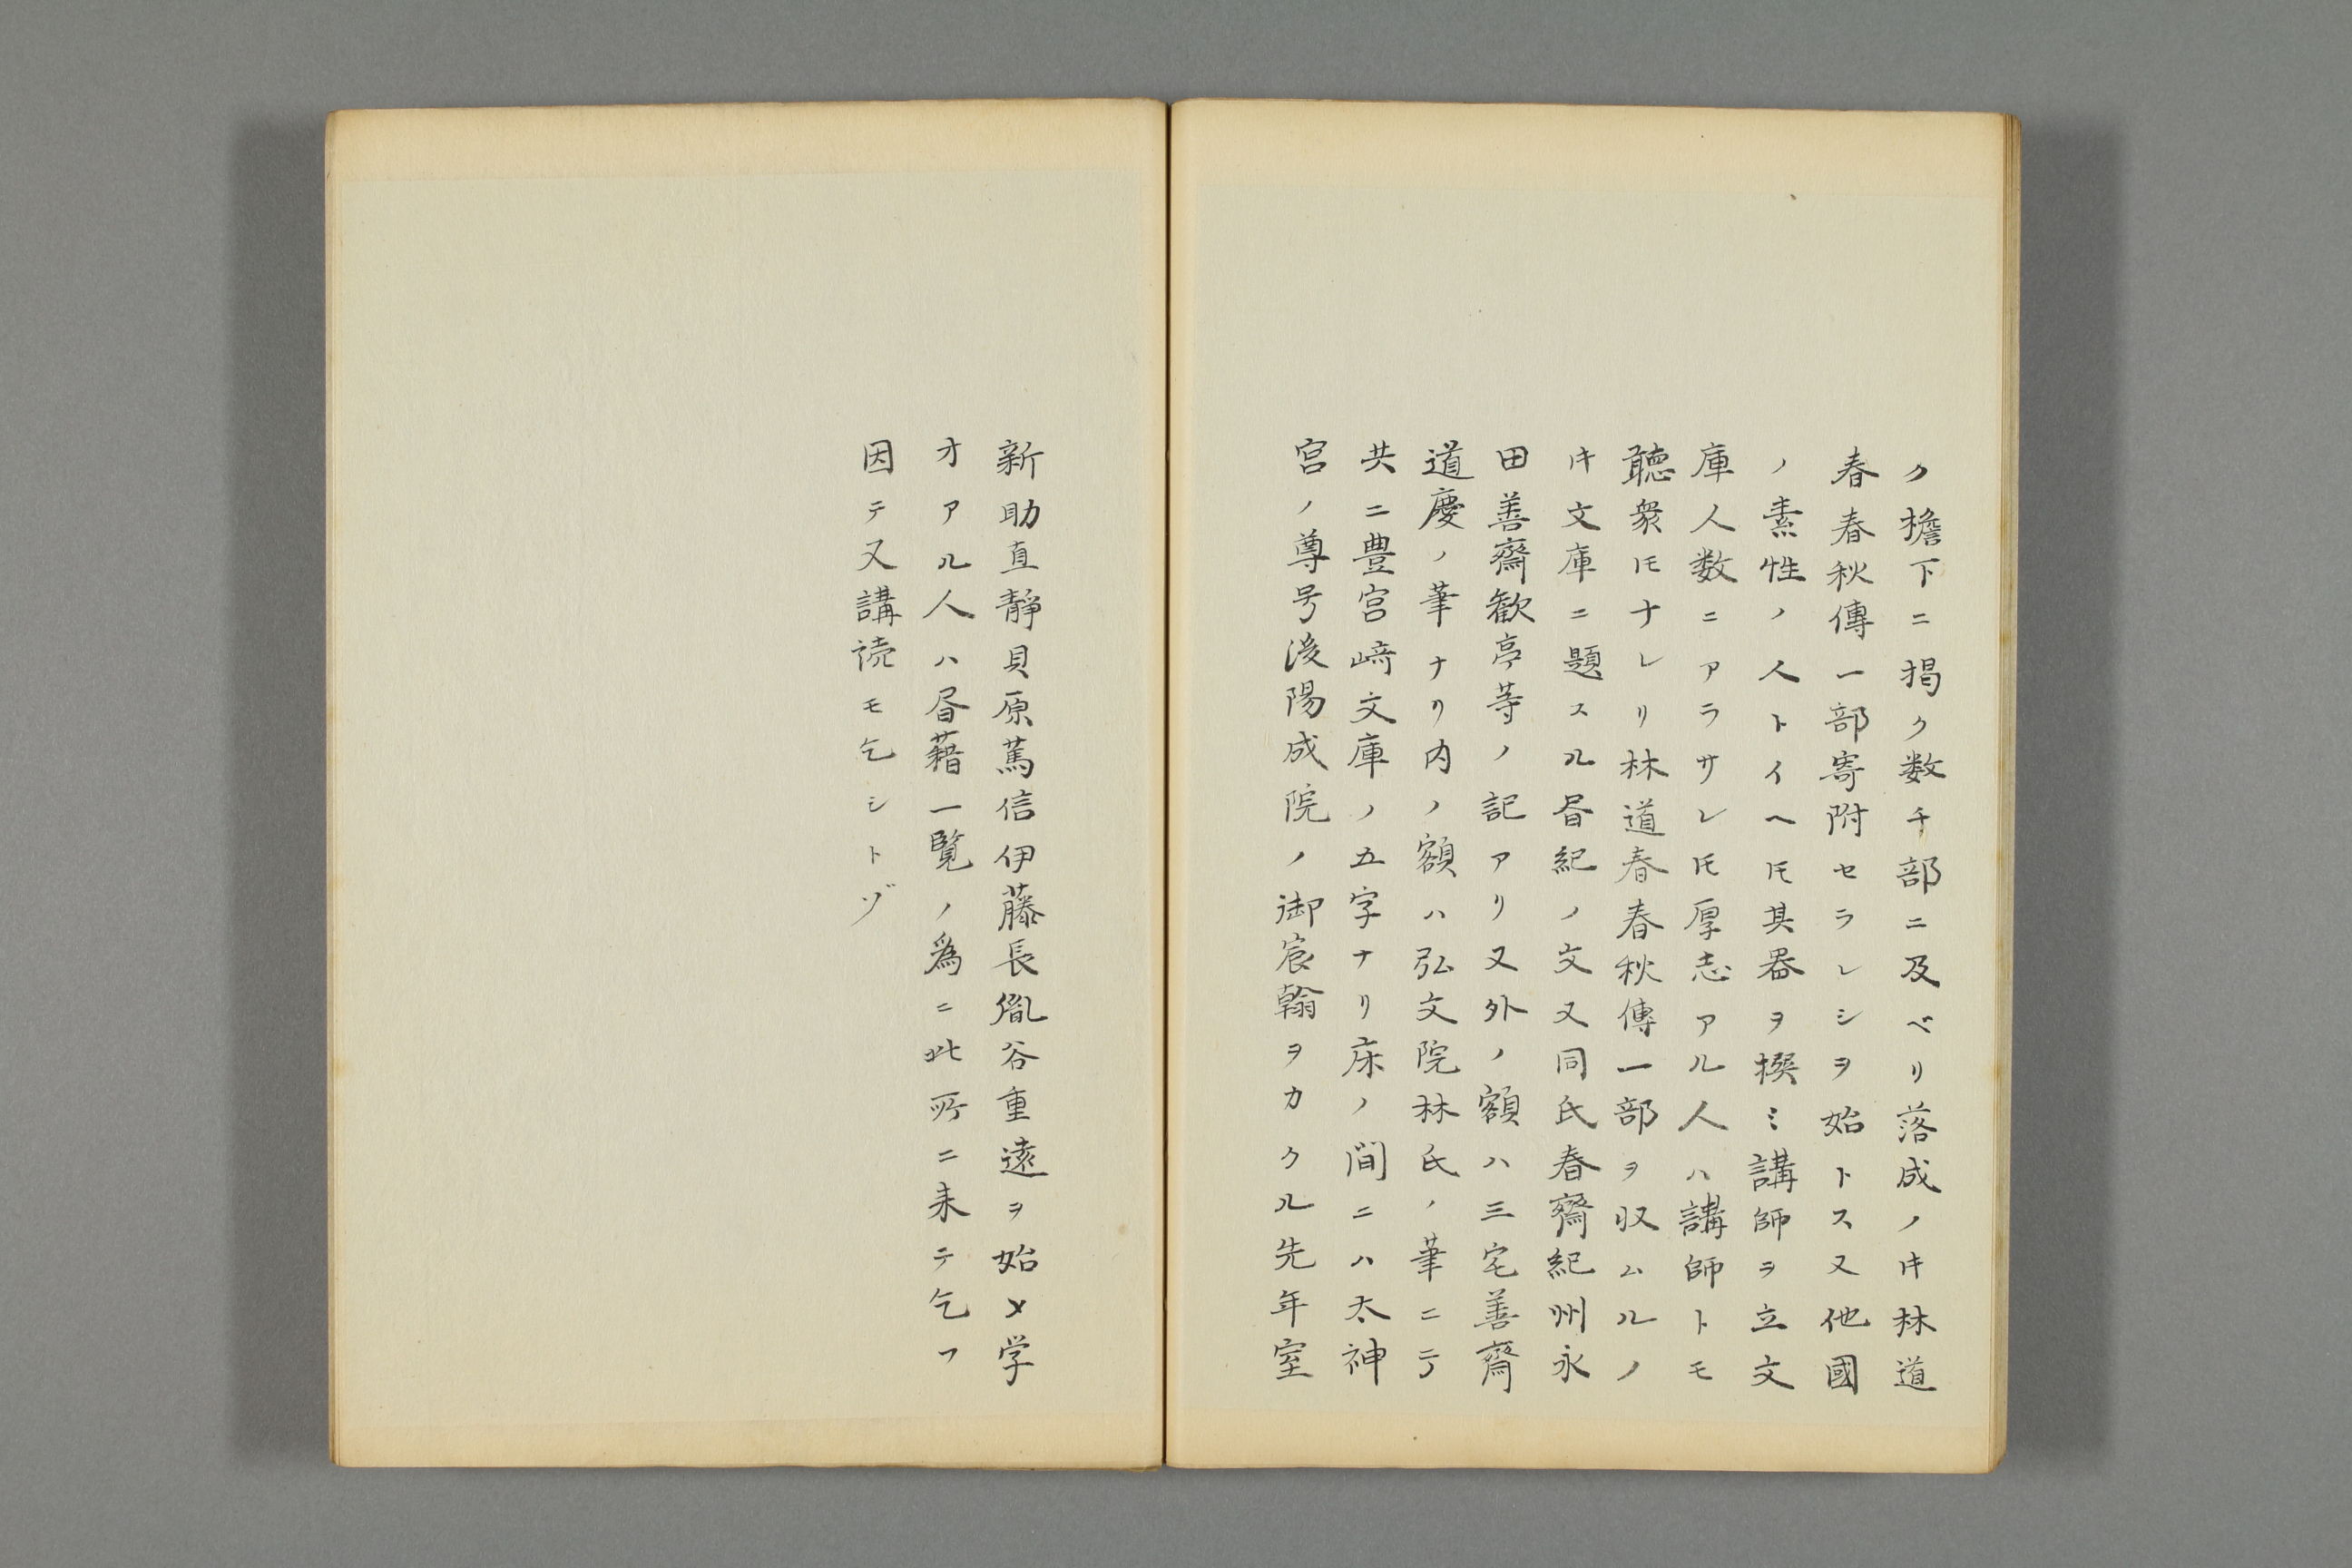 ク檐下ニ掲ク数千部ニ及ベリ落成ノ𪜈林道
春春秋傳一部寄附セラレシヲ始トス又他國
ノ素性ノ人トイヘ𪜈其器ヲ撰ミ講師ヲ立文
庫人数ニアラサレ𪜈厚志アル人ハ講師トモ
聴衆𪜈ナレリ林道春春秋傳一部ヲ収ムルノ
𪜈文庫ニ題スル昏紀ノ文又同氏春齋紀州永
田善齋歓亭等ノ記アリ又外ノ額ハ三宅善齋
道慶ノ筆ナリ内ノ額ハ弘文院林氏ノ筆ニテ
共ニ豊宮﨑文庫ノ五字ナリ床ノ間ニハ太神
宮ノ尊号後陽成院ノ御宸翰ヲカクル先年室
新助直靜貝原篤信伊藤長胤谷重遠ヲ始メ学
オアル人ハ昏藉一覧ノ為ニ此所ニ来テ乞フ
因テ又講読モ乞シトゾ